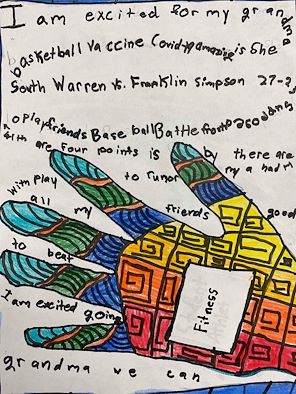 I am excited for my grandma
basketball vaccine Covid amazing is she
South Warren vs. Franklin Simpson 27-2
to play friends Base ball Battle front good
with are four points is by there are
with play to runor my a had
all my friends good
to beat
I am excited going
Fitness
grandma we can